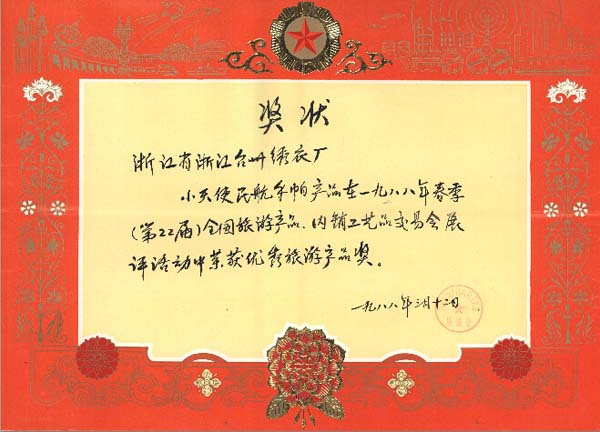 奖状
浙江省浙江台州绣衣厂
小天使民航手帕产品在一九八八年春季
(第22届)全国旅游产品、内销工艺品交易会展
评活动中荣获优秀旅游产品奖。
一九八八年三月十二日